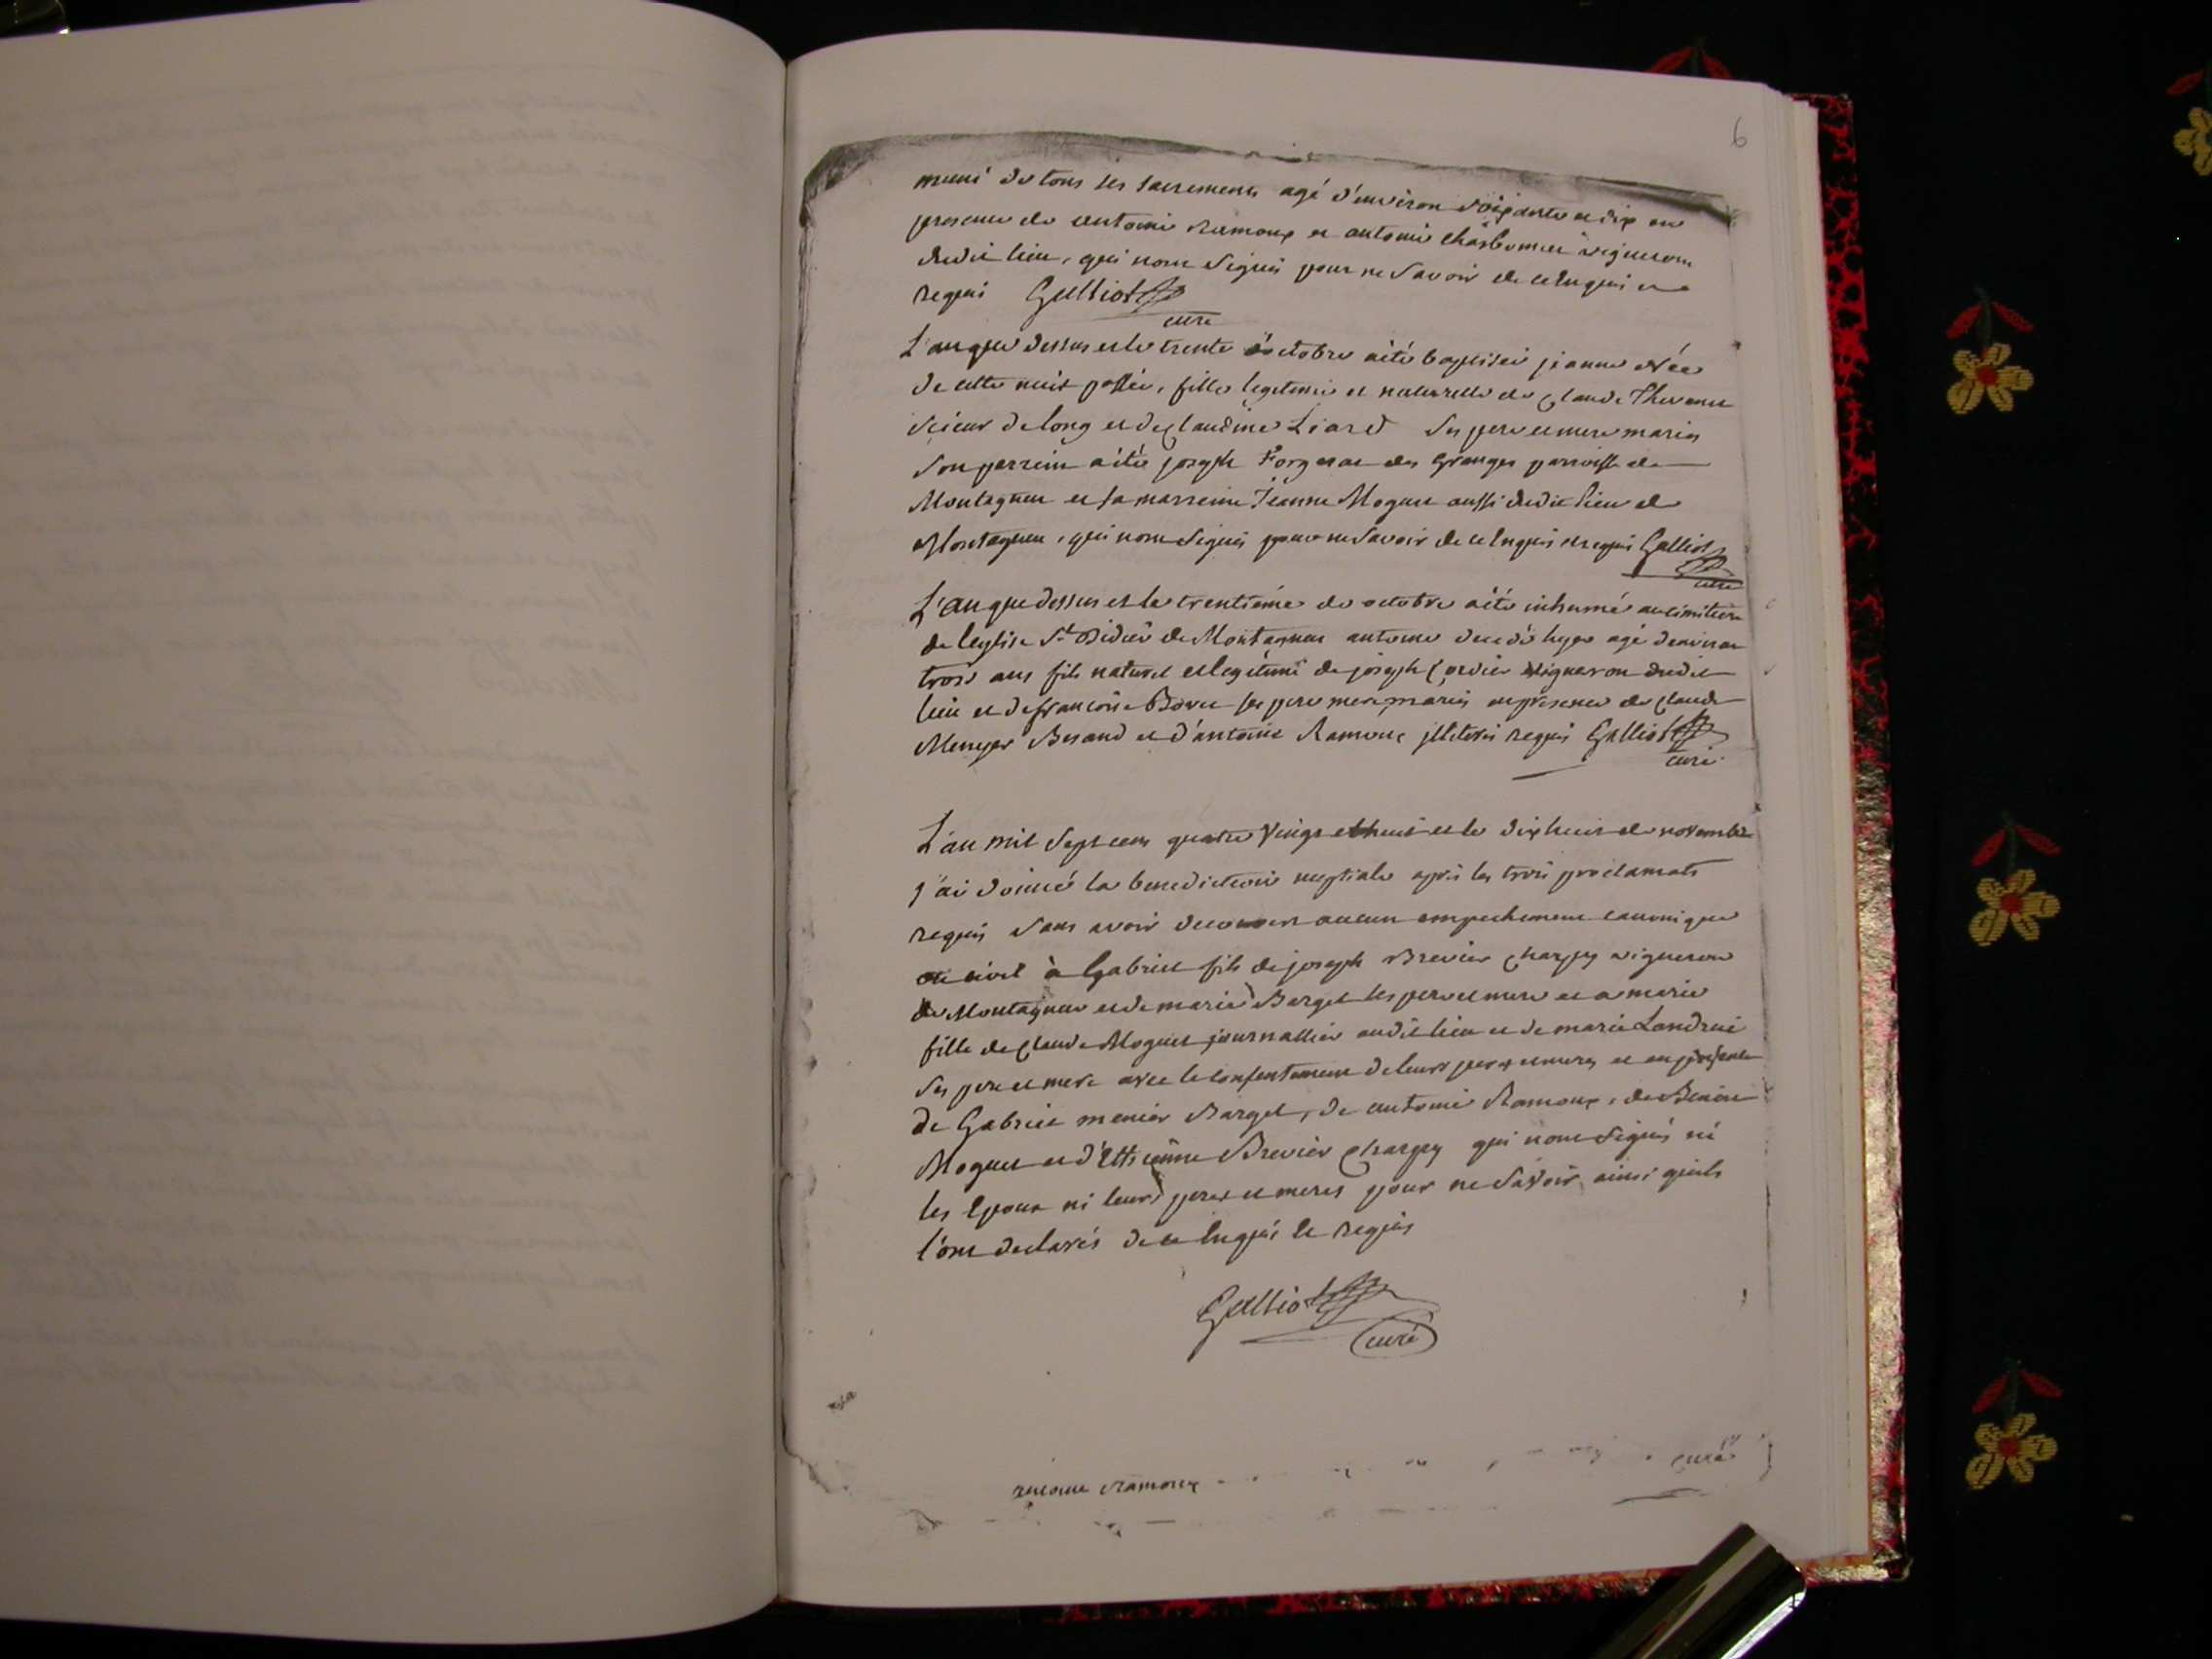 6
muni de tous ses sacrements agé d'environ soixante et dix en
presence de antoine Ramoux et antoine Charbonnier vigneron
dudit lieu, qui nont signés pour ne savoir de ce enquis et
requis Galliot
curé
L'an que dessus et le trente octobre a été baptisée jeanne Née
de cette nuit passée, fille legitime et naturelle de Claude Thevenet
scieur de long et de Claudine Liard ses pere et mere mariés
son parrein a été joseph Forgerat des Granges parroisse de
Montagneu et sa marreine Jeanne Moguet aussi dudit lieu de
Montagneu, qui nont signés pour ne savoir de ce enquis et requis Galliot
curé
L'an que dessus et le trentieme de octobre a été inhumé au cimitiere
de leglise St Didier de Montagneu antoine decedé hyer agé denviron
trois ans fils naturel et legitime de joseph Cordier vigneron dudit
lieu et de francoise Bovet ses pere mere mariés en presence de Claude
Menyer Besand et d'antoine Ramoux illeterés requis Galliot
curé
L'an mil sept cens quatre vingt et huit et le dix huit de novembre
j'ai donné la benediction nuptiale après les trois proclamats
requis sans avoir decouvert aucun empechement canonique
ou civil à Gabriel fils de joseph Brevier Charpy vigneron
de Montagneu et de marie Barget ses pere et mere et a marie
fille de Claude Moguet journallier audit lieu et de marie Landrui
ses pere et mere avec le consentement de leurs peres et meres et en presence
de Gabriel menier Barget, de antoine Ramoux, de Benoit
Moguet et d'Ettienne Brevier Charpy qui nont signés ni
les Epoux ni leurs peres et meres pour ne savoir ainsi quils
l'ont declarés de ce enquis et requis
Galliot
curé
Ramoux curé